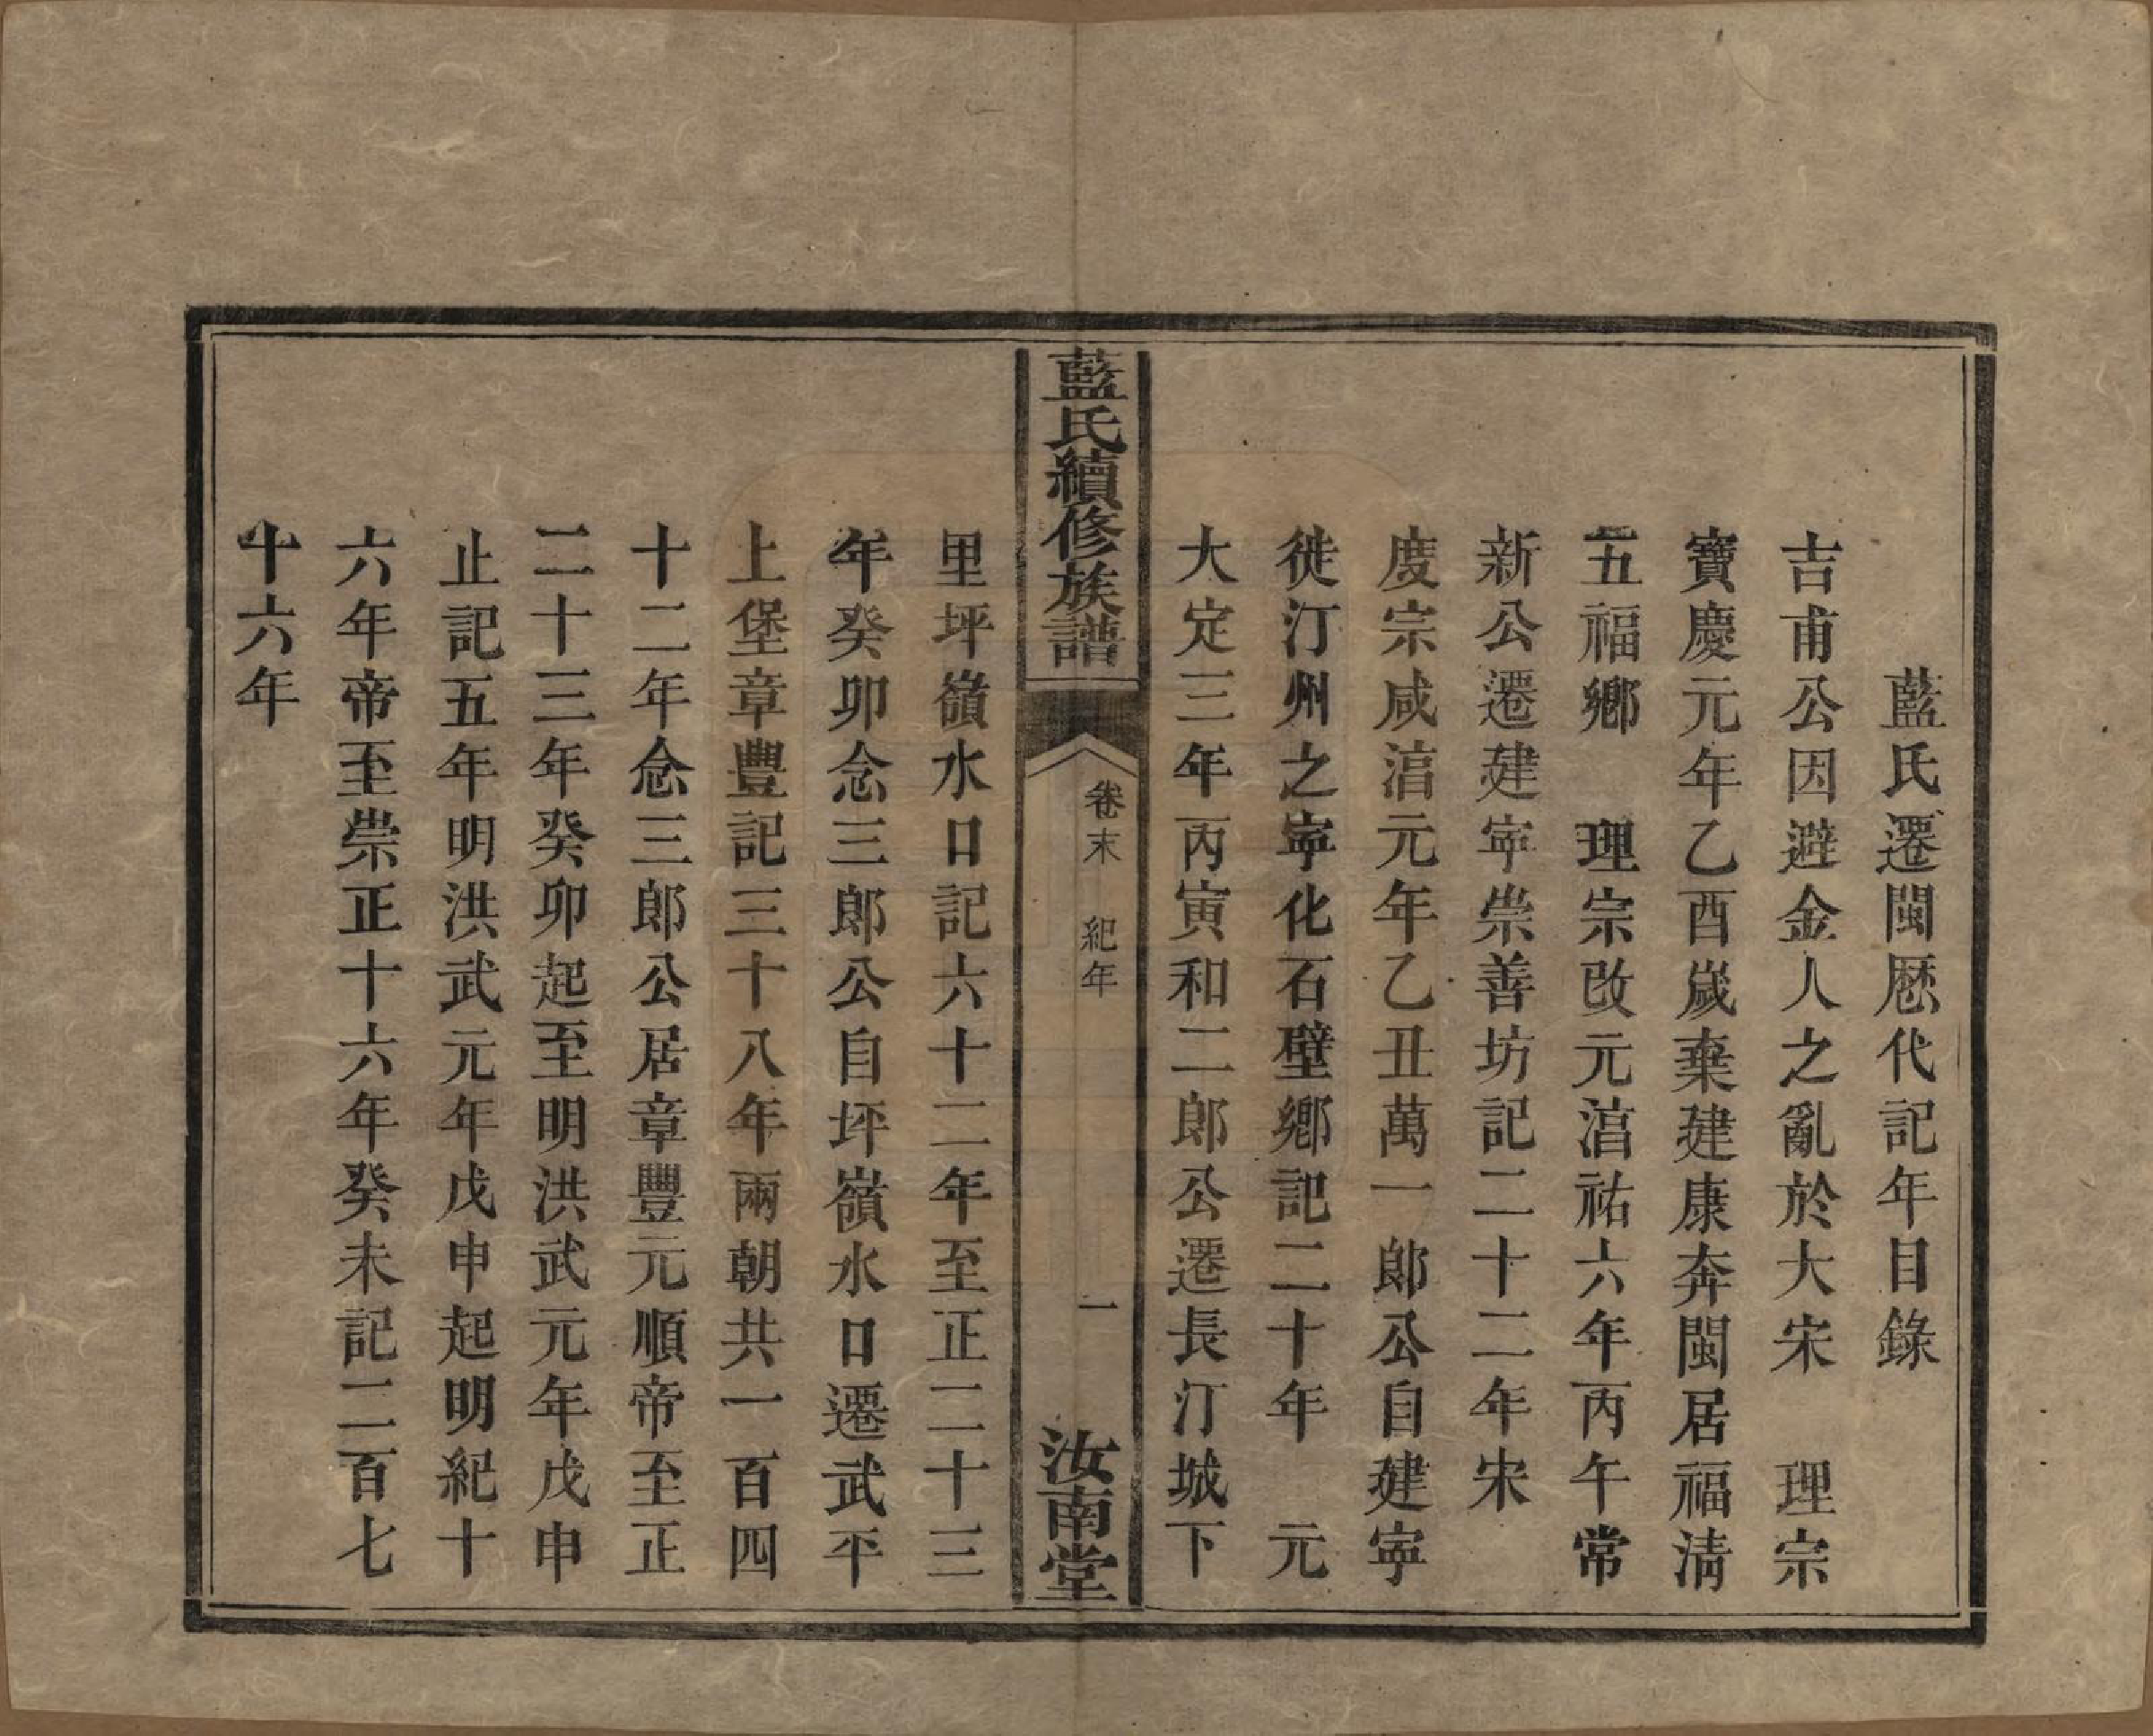 藍氏遷閩厯代記年目錄
吉甫公因避金人之亂於大宋　理宗
寶慶元年乙酉嵗棄建康奔閩居福清
五福鄉　理宗改元湻祐六年丙午常
新公遷建寜崇善坊記二十二年宋
度宗咸湻元年乙丑萬一郎公自建寜
徙汀州之寜化石壁鄉記二十年　元
大定三年丙寅和二郎公遷長汀城下
藍氏續修族譜
卷末　紀年
一
汝南堂
里坪嶺水口記六十二年至正二十三
年癸卯念三郎公自坪嶺水口遷武平
上堡章豐記三十八年兩朝共一百四
十二年念三郎公居章豐元順帝至正
二十三年癸卯起至明洪武元年戊申
止記五年明洪武元年戊申起明紀十
六年帝至崇正十六年癸未記二百七
十六年